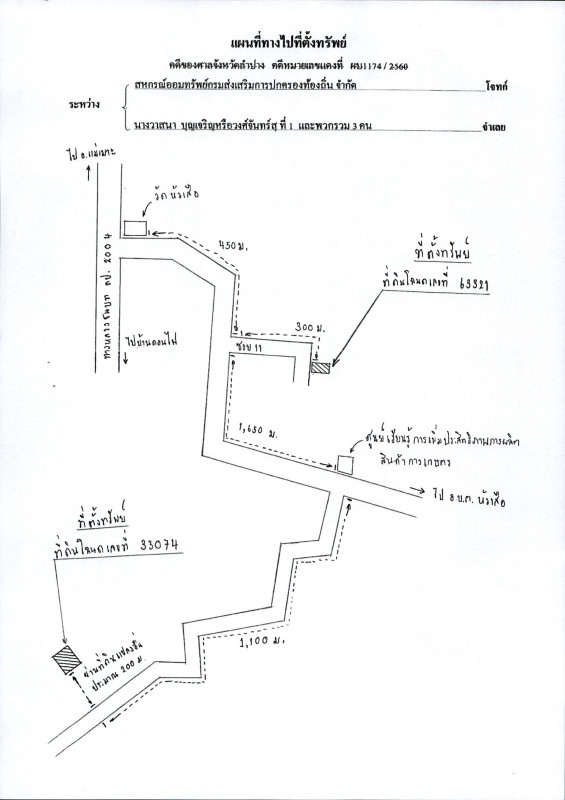 แผนที่ทางไปที่ตั้งทรัพย์
คดีของศาลจังหวัดลำปาง คดีหมายเลขแดงที่ ผบ1174 / 2560
ระหว่าง
สหกรณ์ออมทรัพย์กรมส่งเสริมการปกครองท้องถิ่น จำกัด โจทก์
นางวาสนา บุญเจริญหรือวงศ์จันทร์สุ ที่ 1 และพวกรวม 3 คน จำเลย
ไป อ.แม่เมาะ
วัดหัวเสือ
450 ม.
ที่ตั้งทรัพย์
ที่ดินโฉนดเลขที่ 63321
ทางหลวงชนบท ลป. 2004
300 ม.
ไปบ้านดอนไฟ
ซอย 11
1,650 ม.
ศูนย์เรียนรู้การเพิ่มประสิทธิภาพการผลิต
สินค้าการเกษตร
ไป อ.บ.ต. หัวเสือ
ที่ตั้งทรัพย์
ที่ดินโฉนดเลขที่ 33074
1,100 ม.
ผ่านที่ดินแปลงอื่น
ประมาณ 200 ม.